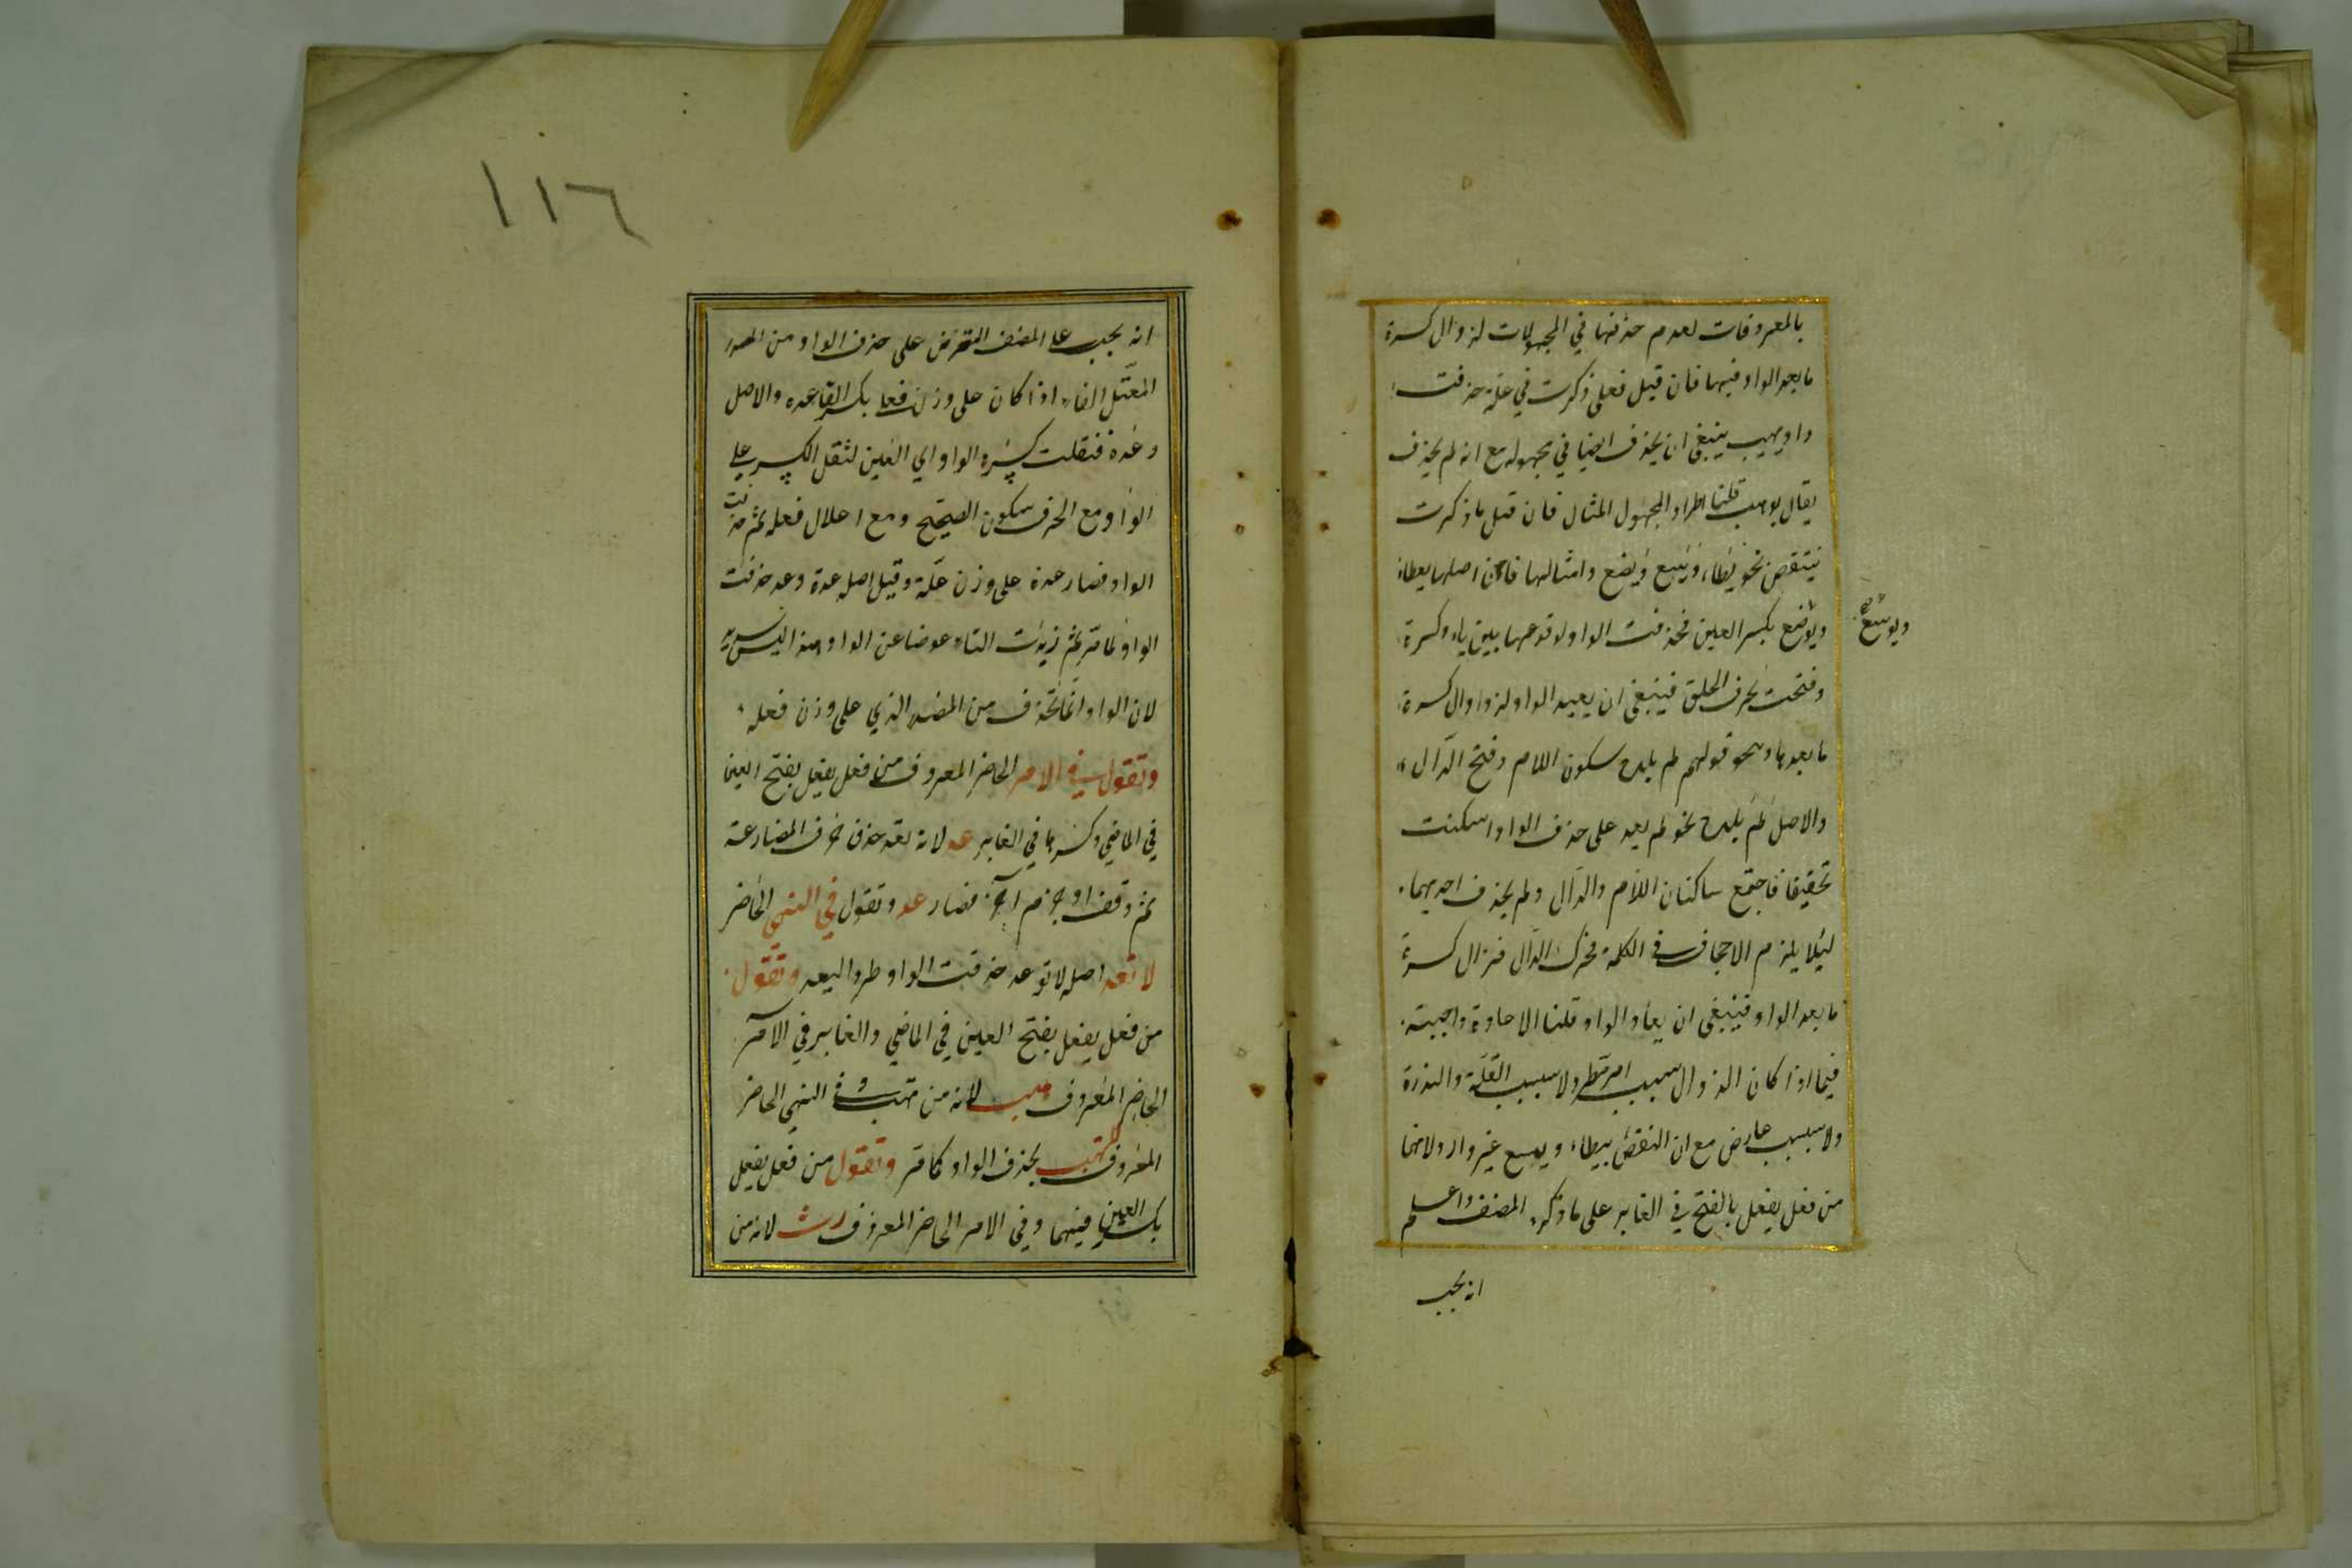 بالمعروفات لعدم حذفها في المجهولات لزوال كسرة
ما بعد الواو فيها فان قيل فعلى ذكرت في علة حذفت
واو يهب ينبغي ان يحذف ايضا في مجهوله مع انه لم يحذف
يقال يوهب قلنا اطراد المجهول المثال فان قيل ما ذكرت
ينتقص بنحو يطاء ويسع ويضع وامثالها فان اصلها يوطاء
ويوضع بكسر العين فحذفت الواو لوقوعها بين ياء وكسرة
ويوسع صح
وفتحت لحرف الحلق فينبغي ان يعيد الواو لزوال كسرة
ما بعدها ونحو قولهم لم يلد بسكون اللام وفتح الدال
والاصل لم يلد نحو لم يعد على حذف الواو اسكنت
تخفيفا فاجتمع ساكنان اللام والدال ولم يحذف احديهما
ليلا يلزم الاجحاف في الكلمة فحرك الدال فزال كسرة
ما بعد الواو فينبغي ان يعاد الواو قلنا الاعادة واجبة
فيما اذا كان الزوال بسبب امر مطرد لا بسبب القلة والندرة
ولا بسبب عارض مع ان النقض بيطاء ويسع غير وارد لانهما
من فعل يفعل بالفتح في الغابر على ما ذكره المصنف واعلم
انه يجب
١١٦
انه يجب على المصنف التعرض على حذف الواو من المصدر
المعتل الفاء اذا كان على وزن فعل بكسر القاعده والاصل
وعدة فنقلت كسرة الواو الى العين لثقل الكسر على
الواو مع الحرف سكون الصحيح ومع اعلال فعله ثم حذفت
الواو فصار عدة على وزن علة وقيل اصله عدة وعد حذفت
الواو لما مر ثم زيدت التاء عوضا عن الواو وهذا ليس بسديد
لان الواو انما تحذف من المصدر الذي على وزن فعله
وتقول في الامر الحاضر المعروف من فعل يفعل بفتح العين
في الماضي وكسرها في الغابر عد لانه بعد حذف حرف المضارعة
ثم وقف او جزم اخره فصار عد وتقول في النهي الحاضر
لا تعد اصله لا توعد حذفت الواو طردا ليعد وتقول
من فعل يفعل بفتح العين في الماضي والغابر في الامر
الحاضر المعروف هب لانه من تهب وفي النهي الحاضر
المعروف لا تهب بحذف الواو كما مر وتقول من فعل يفعل
بكسر العين فيهما وفي الامر الحاضر المعروف رث لانه من